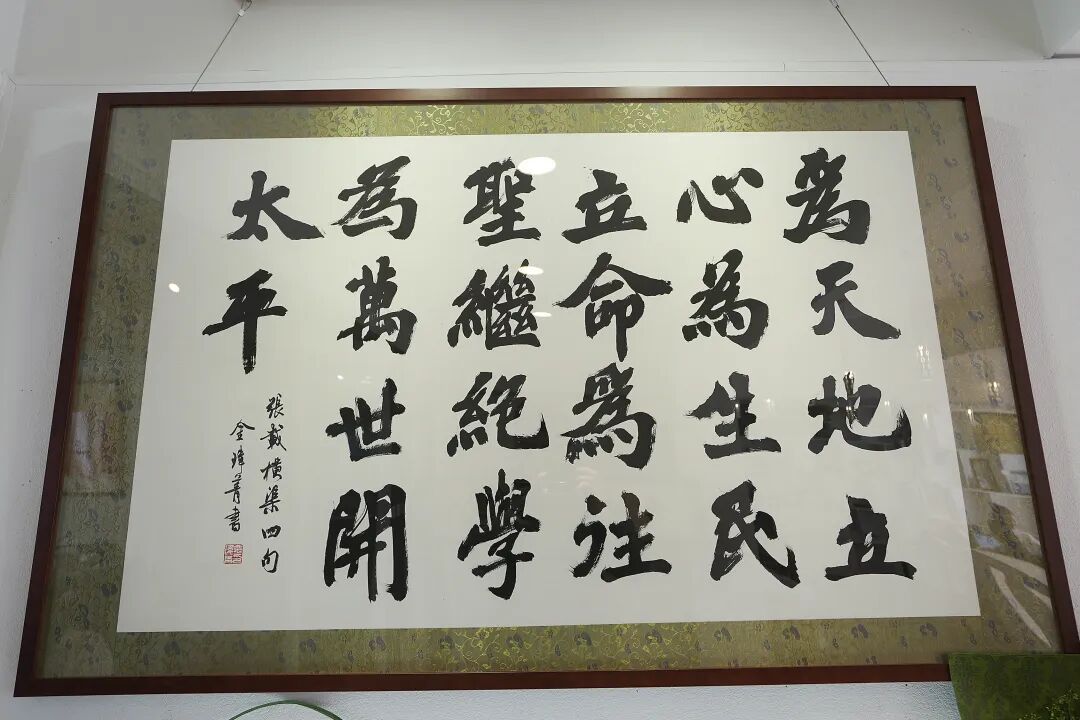 爲天地立
心為生民
立命爲往
聖繼絶學
為萬世開
太平
張載橫渠四句
金瑋菁書